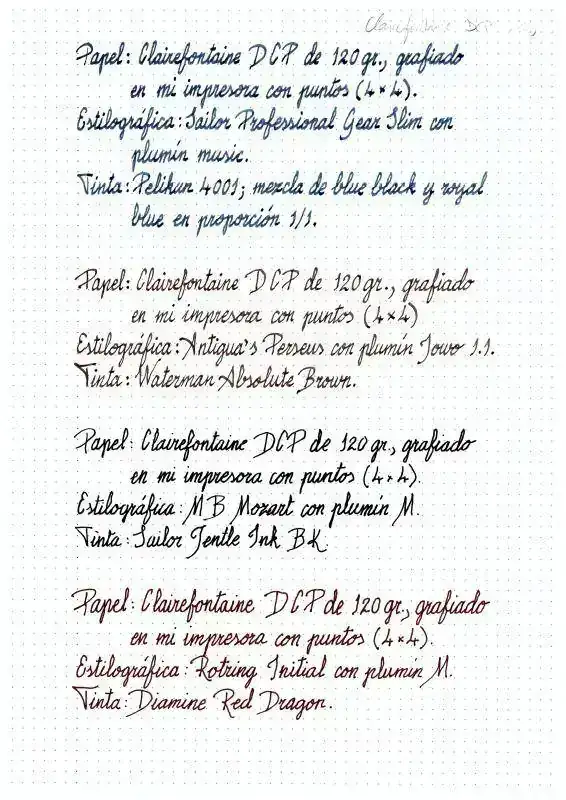 Clairefontaine DCP
Papel: Clairefontaine DCP de 120 gr., grafiado
en mi impresora con puntos (4×4).
Estilográfica: Sailor Professional Gear Slim con
plumín music.
Tinta: Pelikan 4001; mezcla de blue black y royal
blue en proporción 1/1.
Papel: Clairefontaine DCP de 120 gr., grafiado
en mi impresora con puntos (4×4)
Estilográfica: Antigua's Perseus con plumín Jowo 1.1.
Tinta: Waterman Absolute Brown.
Papel: Clairefontaine DCP de 120 gr., grafiado
en mi impresora con puntos (4×4).
Estilográfica: MB Mozart con plumín M.
Tinta: Sailor Jentle Ink BK.
Papel: Clairefontaine DCP de 120 gr., grafiado
en mi impresora con puntos (4×4).
Estilográfica: Rotring Initial con plumín M.
Tinta: Diamine Red Dragon.